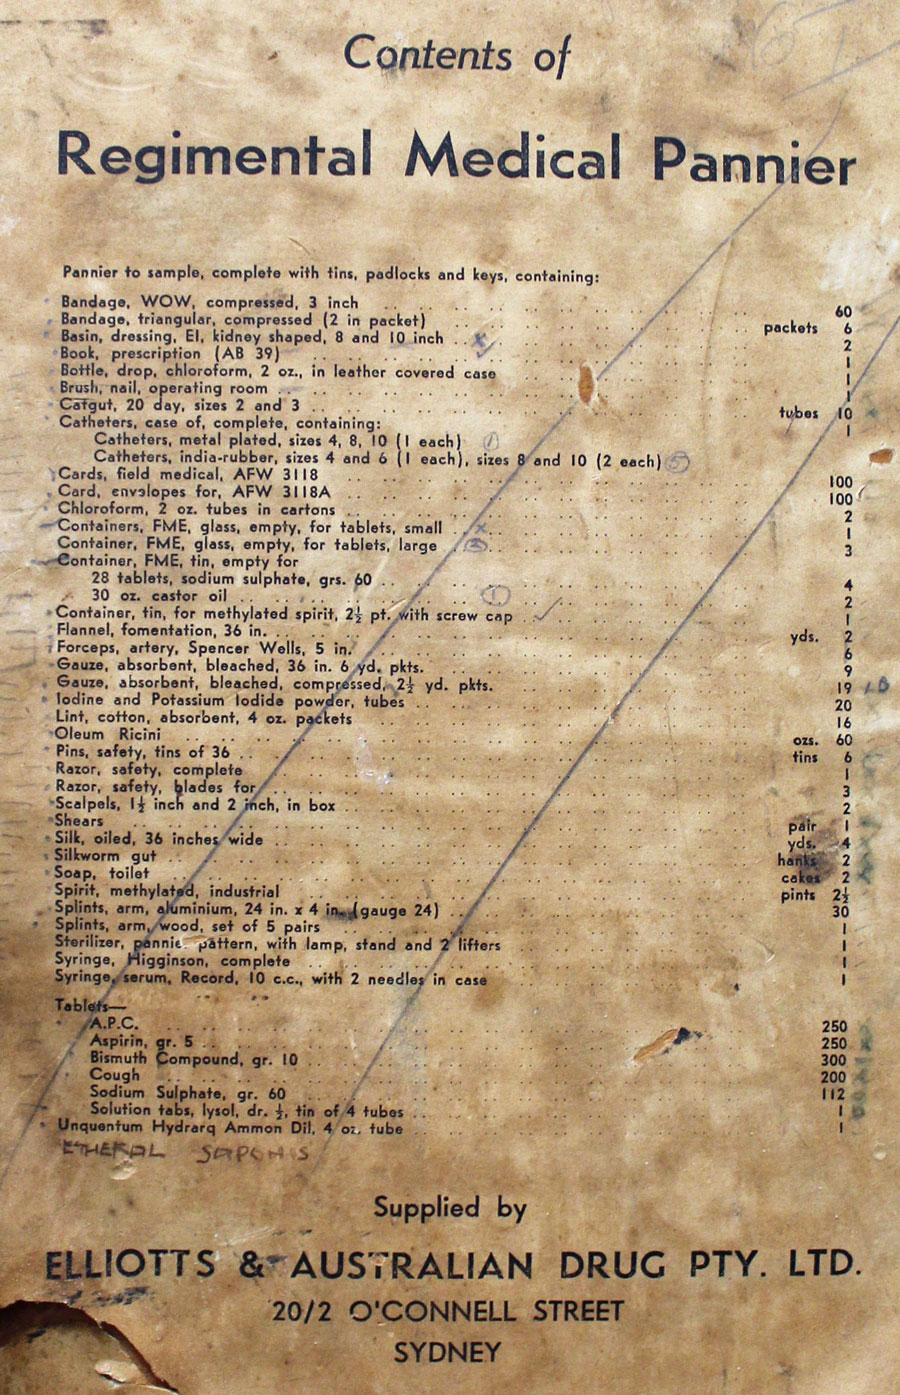 Contents of
Regimental Medical Pannier
Pannier to sample, complete with tins, padlocks and keys, containing:
Bandage, WOW, compressed, 3 inch 60
Bandage, triangular, compressed (2 in packet) packets 6
Basin, dressing, EI, kidney shaped, 8 and 10 inch x 2
Book, prescription (AB 39) 1
Bottle, drop, chloroform, 2 oz., in leather covered case 1
Brush, nail, operating room 1
Catgut, 20 day, sizes 2 and 3 tubes 10
Catheters, case of, complete, containing: 1
Catheters, metal plated, sizes 4, 8, 10 (1 each)
Catheters, india-rubber, sizes 4 and 6 (1 each), sizes 8 and 10 (2 each)
Cards, field medical, AFW 3118 100
Card, envelopes for, AFW 3118A 100
Chloroform, 2 oz. tubes in cartons 2
Containers, FME, glass, empty, for tablets, small x 1
Container, FME, glass, empty, for tablets, large 3
Container, FME, tin, empty for
28 tablets, sodium sulphate, grs. 60 4
30 oz. castor oil 2
Container, tin, for methylated spirit, 2½ pt. with screw cap 1
Flannel, fomentation, 36 in. yds. 2
Forceps, artery, Spencer Wells, 5 in. 6
Gauze, absorbent, bleached, 36 in. 6 yd. pkts. 9
Gauze, absorbent, bleached, compressed, 2½ yd. pkts. 19
Iodine and Potassium Iodide powder, tubes 20
Lint, cotton, absorbent, 4 oz. packets 16
Oleum Ricini ozs. 60
Pins, safety, tins of 36 tins 6
Razor, safety, complete 1
Razor, safety, blades for 3
Scalpels, 1½ inch and 2 inch, in box 2
Shears pair 1
Silk, oiled, 36 inches wide yds. 4
Silkworm gut hanks 2
Soap, toilet cakes 2
Spirit, methylated, industrial pints 2½
Splints, arm, aluminium, 24 in. x 4 in. (gauge 24) 30
Splints, arm, wood, set of 5 pairs 1
Sterilizer, pannier pattern, with lamp, stand and 2 lifters 1
Syringe, Higginson, complete 1
Syringe, serum, Record, 10 c.c., with 2 needles in case 1
Tablets—
A.P.C. 250
Aspirin, gr. 5 250
Bismuth Compound, gr. 10 300
Cough 200
Sodium Sulphate, gr. 60 112
Solution tabs, lysol, dr. ½, tin of 4 tubes 1
Unquentum Hydrarq Ammon Dil, 4 oz. tube 1
Supplied by
ELLIOTTS & AUSTRALIAN DRUG PTY. LTD.
20/2 O'CONNELL STREET
SYDNEY